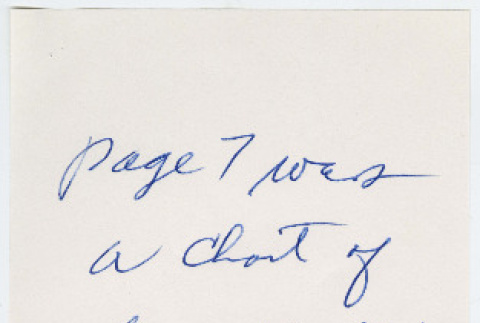 page 7 was
a chart of